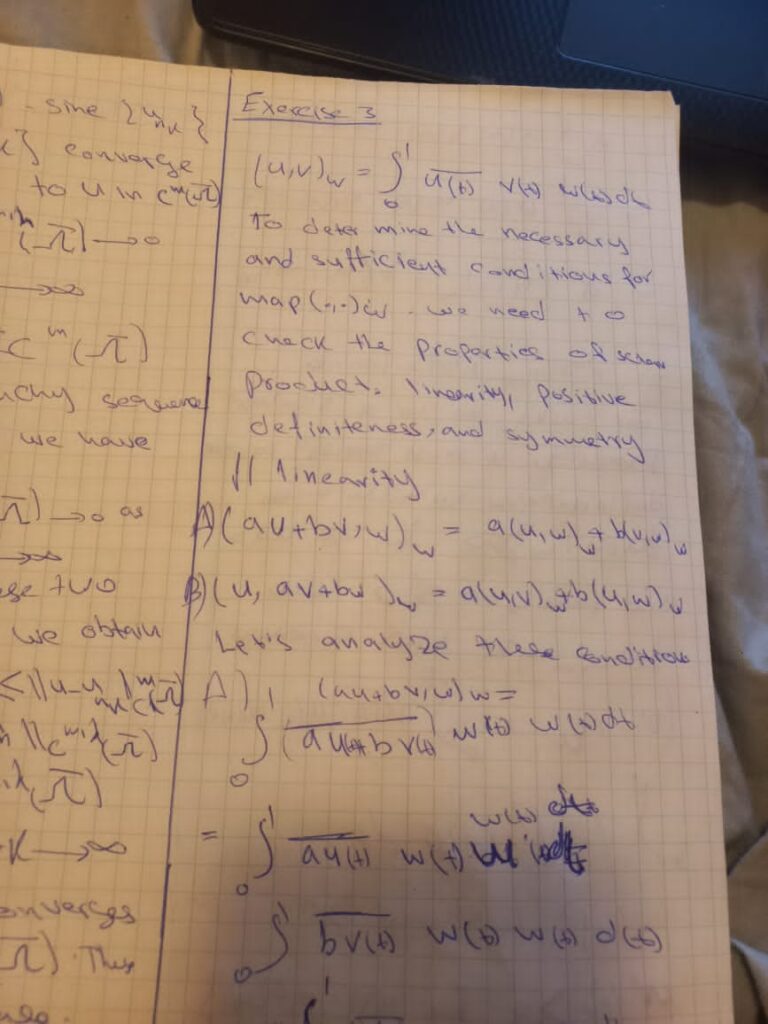 . sine {u_{nk}}
} converge
to u in c^m(Ω̅)
(Ω̅) → 0
→ ∞
c^m(Ω̅)
uchy sequence
we have
Ω̅) → 0 as
→ ∞
ese two
we obtain
≤ ||u-u_{nk}||
||c^{m,λ}(Ω̅)
λ(Ω̅)
K → ∞
onverges
Ω̅). Thus
Exercise 3
(u,v)_w = ∫_0^1 \overline{u(t)} v(t) w(t) dt
To determine the necessary
and sufficient conditions for
map (.,.)w. we need to
check the properties of
product. linearity, positive
definiteness, and symmetry
1) linearity
A) (au+bv,w)_w = a(u,w)_w + b(v,w)_w
B) (u, av+bw)_w = a(u,v)_w + b(u,w)_w
Let's analyze these conditions
A) (au+bv,w)w =
∫_0^1 \overline{(au(t)+bv(t))} w(t) w(t) dt
= ∫_0^1 \overline{au(t)} w(t) w(t) dt
∫_0^1 \overline{bv(t)} w(t) w(t) d(t)